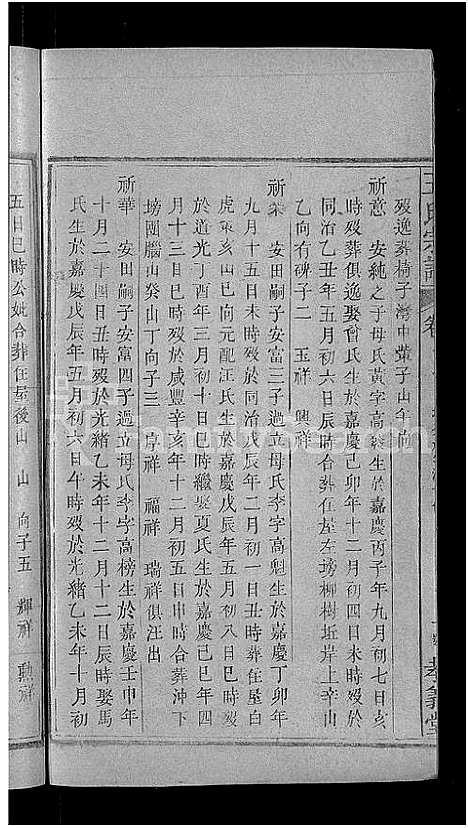 王氏宗譜
卷
孝義堂
歿逸葬椅子灣中輩子山午向
祈意 安純之子母氏黃字高棻生於嘉慶丙子年九月初七日亥
時歿葬俱逸娶曾氏生於嘉慶己卯年十二月初四日未時歿於
同治乙丑年五月初六日辰時合葬在屋左塝柳樹坵岸上辛山
乙向有碑子二 玉祥 興祥
祈榮 安田嗣子安富三子過立母氏李字高魁生於嘉慶丁卯年
九月十五日未時歿於同治戊辰年二月初一日丑時葬住屋白
虎東亥山巳向元配汪氏生於嘉慶戊辰年五月初八日巳時歿
於道光丁酉年三月初十日巳時繼娶夏氏生於嘉慶己巳年四
月十三日亥時歿於咸豐辛亥年十二月初五日申時合葬沖下
塝團腦山癸山丁向子三 卓祥 福祥 瑞祥俱汪出
祈華 安田嗣子安富四子過立母氏李字高榜生於嘉慶壬申年
十月二十四日丑時歿於光緒乙未年十二月十二日辰時娶馬
氏生於嘉慶戊辰年五月初六日午時歿於光緒乙未年十月初
五日巳時公妣合葬住屋後山 山 向子五 輝祥 勳祥